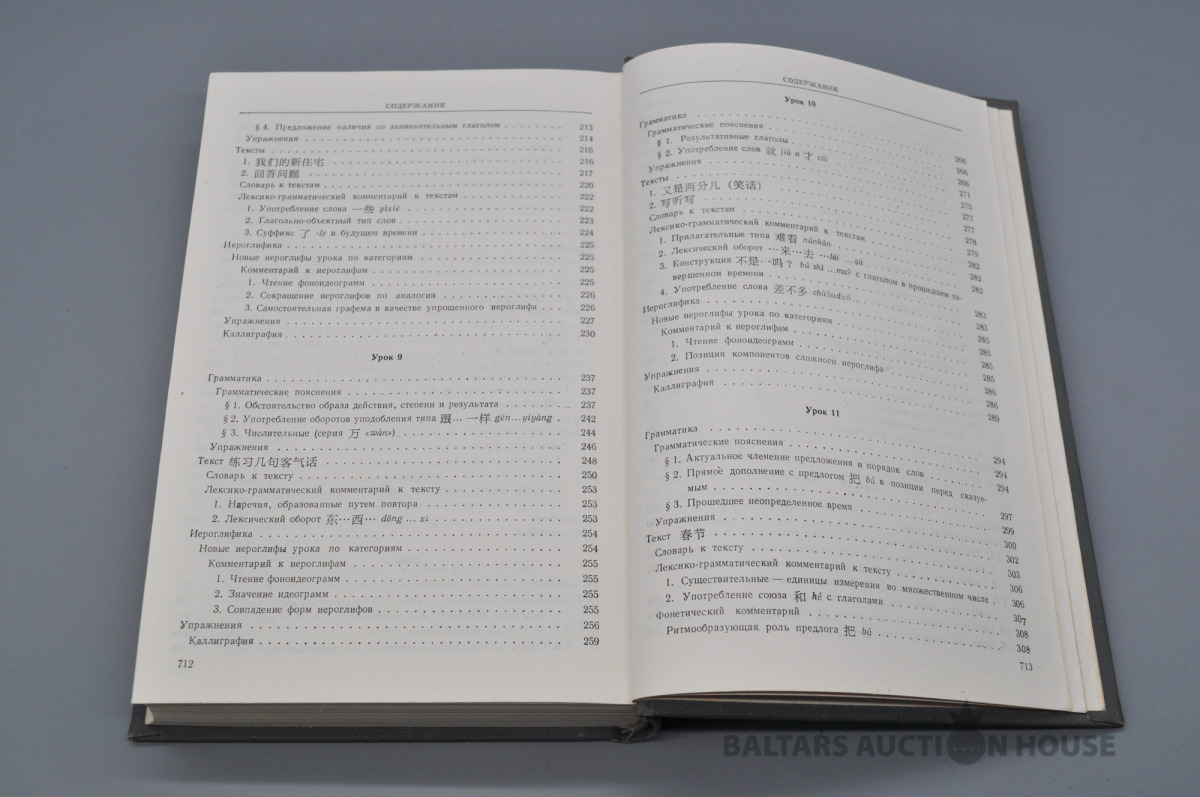 СОДЕРЖАНИЕ
§ 4. Предложение наличия со знаменательным глаголом . . . . . . . . 213
Упражнения . . . . . . . . 214
Тексты . . . . . . . . 216
1. 我们的新住宅 . . . . . . . . 216
2. 回答问题 . . . . . . . . 217
Словарь к текстам . . . . . . . . 220
Лексико-грамматический комментарий к текстам . . . . . . . . 222
1. Употребление слова 一些 yìxiē . . . . . . . . 222
2. Глагольно-объектный тип слов . . . . . . . . 223
3. Суффикс 了 -le в будущем времени . . . . . . . . 224
Иероглифика . . . . . . . . 225
Новые иероглифы урока по категориям . . . . . . . . 225
Комментарий к иероглифам . . . . . . . . 225
1. Чтение фоноидеограмм . . . . . . . . 225
2. Сокращение иероглифов по аналогии . . . . . . . . 226
3. Самостоятельная графема в качестве упрощенного иероглифа . . . 226
Упражнения . . . . . . . . 227
Каллиграфия . . . . . . . . 230
Урок 9
Грамматика . . . . . . . . 237
Грамматические пояснения . . . . . . . . 237
§ 1. Обстоятельство образа действия, степени и результата . . . . . . . . 237
§ 2. Употребление оборотов уподобления типа 跟... 一样 gēn... yíyàng . 242
§ 3. Числительные (серия 万 «wàn») . . . . . . . . 244
Упражнения . . . . . . . . 246
Текст 练习几句客气话 . . . . . . . . 248
Словарь к тексту . . . . . . . . 250
Лексико-грамматический комментарий к тексту . . . . . . . . 253
1. Наречия, образованные путем повтора . . . . . . . . 253
2. Лексический оборот 东…西… dōng ... xī . . . . . . . . 253
Иероглифика . . . . . . . . 254
Новые иероглифы урока по категориям . . . . . . . . 254
Комментарий к иероглифам . . . . . . . . 255
1. Чтение фоноидеограмм . . . . . . . . 255
2. Значение идеограмм . . . . . . . . 255
3. Совпадение форм иероглифов . . . . . . . . 255
Упражнения . . . . . . . . 256
Каллиграфия . . . . . . . . 259
712
СОДЕРЖАНИЕ
Урок 10
Грамматика . . . . . . . .
Грамматические пояснения . . . . . . . .
§ 1. Результативные глаголы . . . . . . . . 266
§ 2. Употребление слов 就 jiù и 才 cái . . . . . . . . 266
Упражнения . . . . . . . . 266
Тексты . . . . . . . . 271
1. 又是两分儿（笑话） . . . . . . . . 275
2. 写听写 . . . . . . . . 277
Словарь к текстам . . . . . . . . 277
Лексико-грамматический комментарий к текстам . . . . . . . . 278
1. Прилагательные типа 难看 nánkàn . . . . . . . . 279
2. Лексический оборот …来…去 ...lái ...qù . . . . . . . . 282
3. Конструкция 不是…吗？ bú shì ...ma? с глаголом в прошедшем за-
вершенном времени . . . . . . . . 282
4. Употребление слова 差不多 chàbuduō . . . . . . . . 282
Иероглифика . . . . . . . . 283
Новые иероглифы урока по категориям . . . . . . . . 283
Комментарий к иероглифам . . . . . . . . 285
1. Чтение фоноидеограмм . . . . . . . . 285
2. Позиция компонентов сложного иероглифа . . . . . . . . 285
Упражнения . . . . . . . . 286
Каллиграфия . . . . . . . . 289
Урок 11
Грамматика . . . . . . . . 294
Грамматические пояснения . . . . . . . . 294
§ 1. Актуальное членение предложения и порядок слов . . . . . . . . 294
§ 2. Прямое дополнение с предлогом 把 bǎ в позиции перед сказуе-
мым . . . . . . . . 297
§ 3. Прошедшее неопределенное время . . . . . . . . 299
Упражнения . . . . . . . . 300
Текст 春节 . . . . . . . . 302
Словарь к тексту . . . . . . . . 303
Лексико-грамматический комментарий к тексту . . . . . . . . 306
1. Существительные — единицы измерения во множественном числе . 306
2. Употребление союза 和 hé с глаголами . . . . . . . . 307
Фонетический комментарий . . . . . . . . 308
Ритмообразующая роль предлога 把 bǎ . . . . . . . . 308
713
BALTARS AUCTION HOUSE